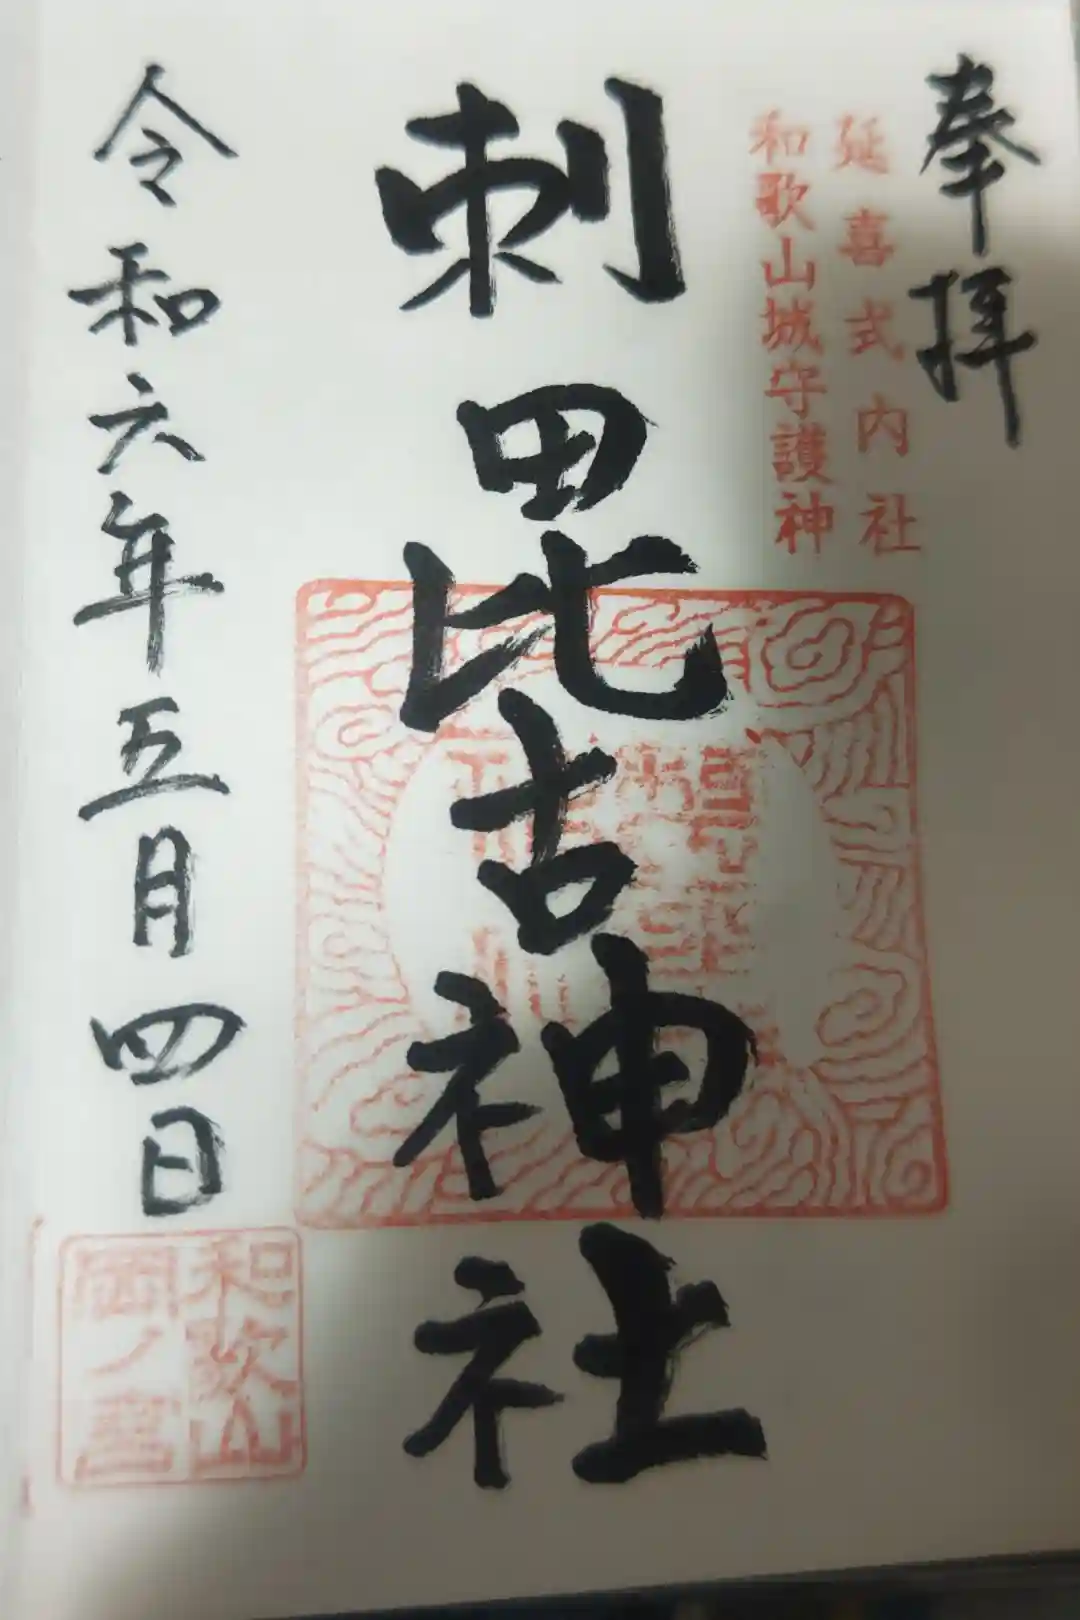 奉拝
延喜式内社
和歌山城守護神
刺田比古神社
令和六年五月四日
和歌山
岡ノ宮